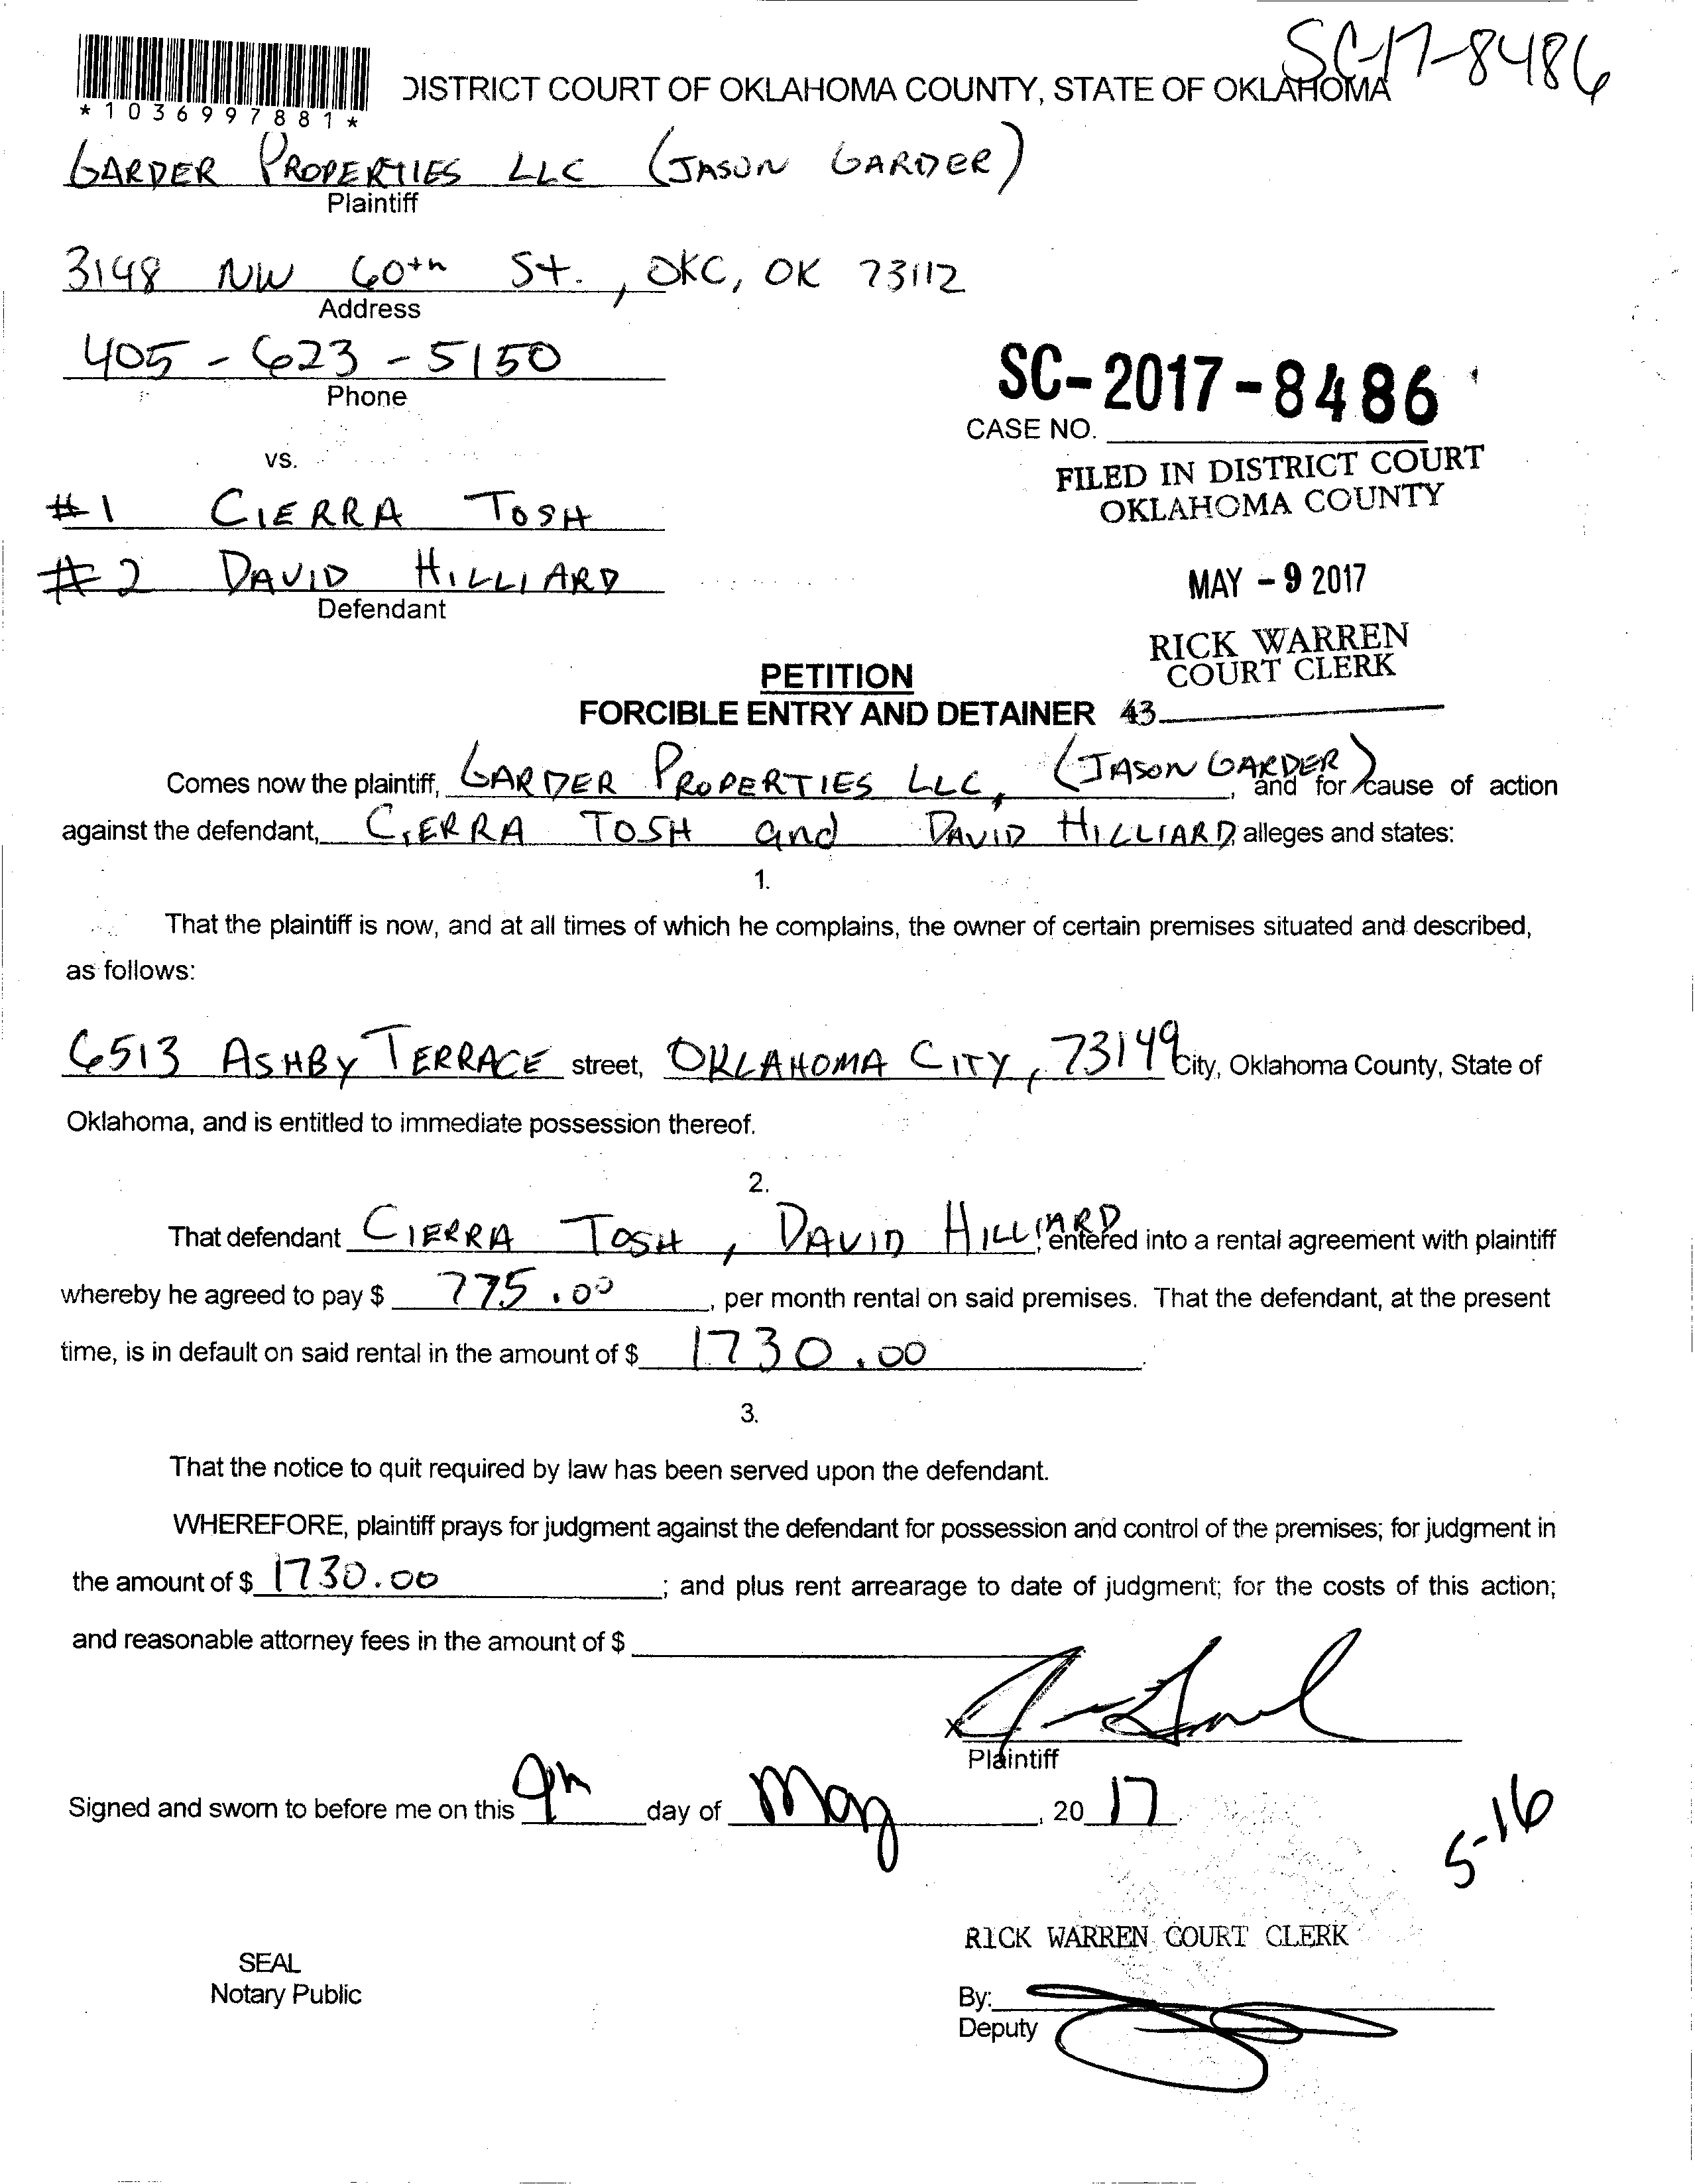 SC-17-8486
*1036997881*
DISTRICT COURT OF OKLAHOMA COUNTY, STATE OF OKLAHOMA
GARDER PROPERTIES LLC (JASON GARDER)
Plaintiff
3148 NW 60th St., OKC, OK 73112
Address
405-623-5150
Phone
SC-2017-8486
CASE NO.
vs.
FILED IN DISTRICT COURT
OKLAHOMA COUNTY
#1 CIERRA TOSH
#2 DAVID HILLIARD
Defendant
MAY - 9 2017
RICK WARREN
COURT CLERK
PETITION
FORCIBLE ENTRY AND DETAINER 43
Comes now the plaintiff, GARDER PROPERTIES LLC, (JASON GARDER), and for cause of action
against the defendant, CIERRA TOSH and DAVID HILLIARD, alleges and states:
1.
That the plaintiff is now, and at all times of which he complains, the owner of certain premises situated and described,
as follows:
6513 ASHBY TERRACE street, OKLAHOMA CITY, 73149 City, Oklahoma County, State of
Oklahoma, and is entitled to immediate possession thereof.
2.
That defendant CIERRA TOSH, DAVID HILLIARD, entered into a rental agreement with plaintiff
whereby he agreed to pay $ 775.00, per month rental on said premises. That the defendant, at the present
time, is in default on said rental in the amount of $ 1730.00.
3.
That the notice to quit required by law has been served upon the defendant.
WHEREFORE, plaintiff prays for judgment against the defendant for possession and control of the premises; for judgment in
the amount of $ 1730.00; and plus rent arrearage to date of judgment; for the costs of this action;
and reasonable attorney fees in the amount of $
x
Plaintiff
Signed and sworn to before me on this 9th day of May, 20 17
5-16
RICK WARREN COURT CLERK
SEAL
Notary Public
By:
Deputy